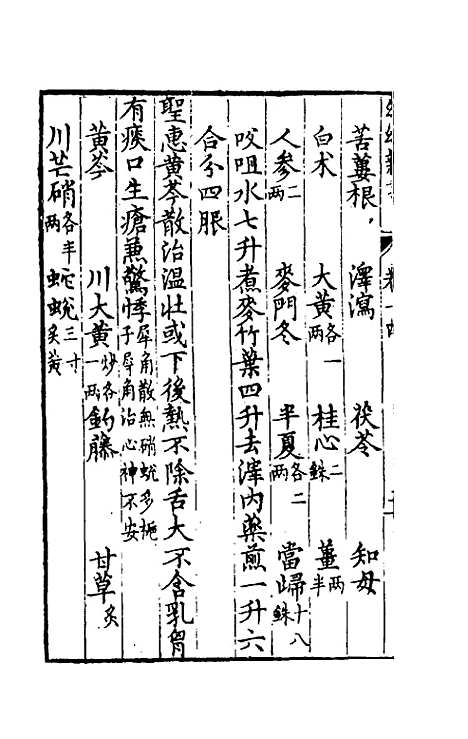 苦蔞根 澤瀉 茯苓 知母
白术 大黃各一兩 桂心二銖 薑兩半
人參二兩 麥門冬 半夏各二兩 當歸十八銖
㕮咀水七升煮麥竹葉四升去滓内藥煎一升六
合分四服
聖惠黃芩散治溫壯或下後熱不除舌大不含乳胷
有痰口生瘡兼驚悸犀角散無硝蛻多梔子犀角治心神不安
黃芩 川大黃炒各一兩 釣藤 甘草炙
川芒硝各半兩 蛇蛻三寸炙黃